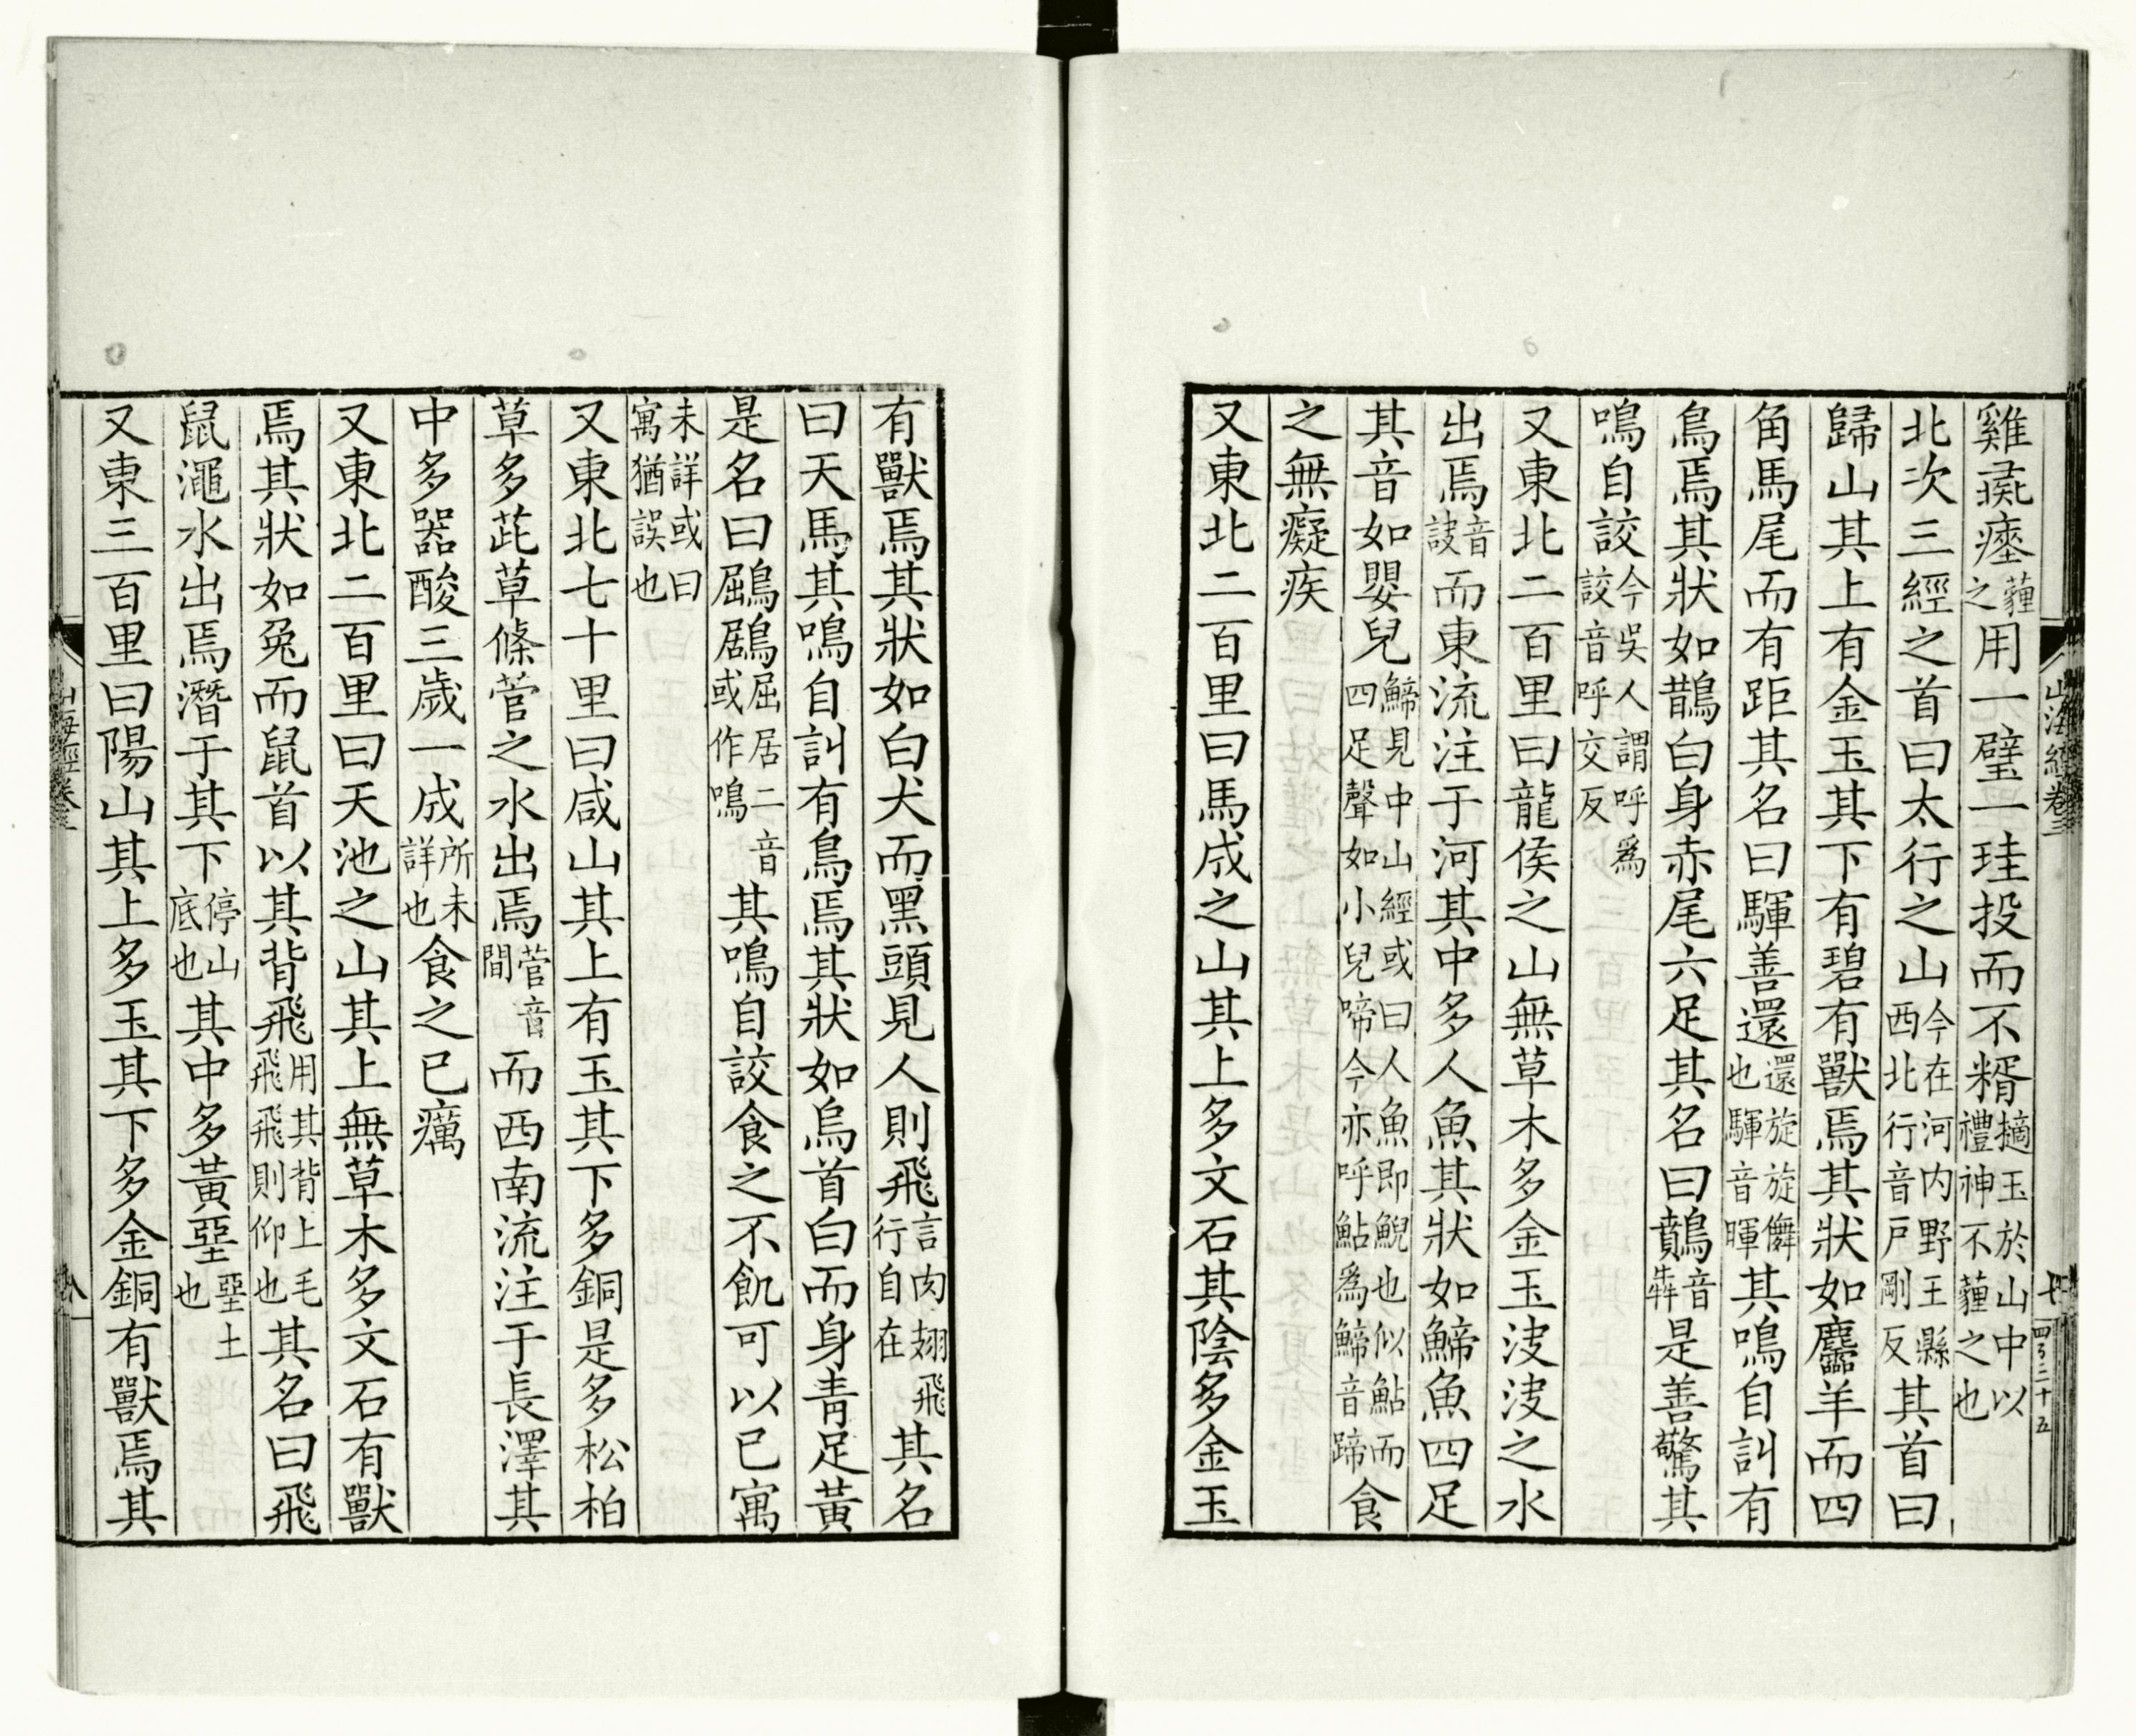 雞彘瘞薶之用一璧一珪投而不糈擿玉於山中以禮神不薶之也
北次三經之首曰太行之山今在河内野王縣西北行音戶剛反其首曰
歸山其上有金玉其下有碧有獸焉其狀如麢羊而四
角馬尾而有距其名曰䮝善還還旋旋儛也䮝音暉其鳴自訓有
鳥焉其狀如鵲白身赤尾六足其名曰鷾音犇是善驚其
鳴自詨今吳人謂呼爲詨音呼交反
又東北二百里曰龍侯之山無草木多金玉泼泼之水
出焉音詖而東流注于河其中多人魚其狀如䱱魚四足
其音如嬰兒䱱見中山經或曰人魚即鯢也似鮎而四足聲如小兒啼今亦呼鮎爲䱱音蹄食
之無癡疾
又東北二百里曰馬成之山其上多文石其陰多金玉
山海經卷三
七
四百二十五
有獸焉其狀如白犬而黑頭見人則飛言肉翅飛行自在其名
曰天馬其鳴自訓有鳥焉其狀如烏首白而身青足黃
是名曰鶌鶋屈居二音或作鳴其鳴自詨食之不飢可以已寓
未詳或曰寓猶誤也
又東北七十里曰咸山其上有玉其下多銅是多松柏
草多茈草條菅之水出焉菅音間而西南流注于長澤其
中多器酸三歲一成所未詳也食之已癘
又東北二百里曰天池之山其上無草木多文石有獸
焉其狀如兔而鼠首以其背飛用其背上毛飛飛則仰也其名曰飛
鼠澠水出焉潛于其下停山底也其中多黃堊堊土也
又東三百里曰陽山其上多玉其下多金銅有獸焉其
山海經卷三
八